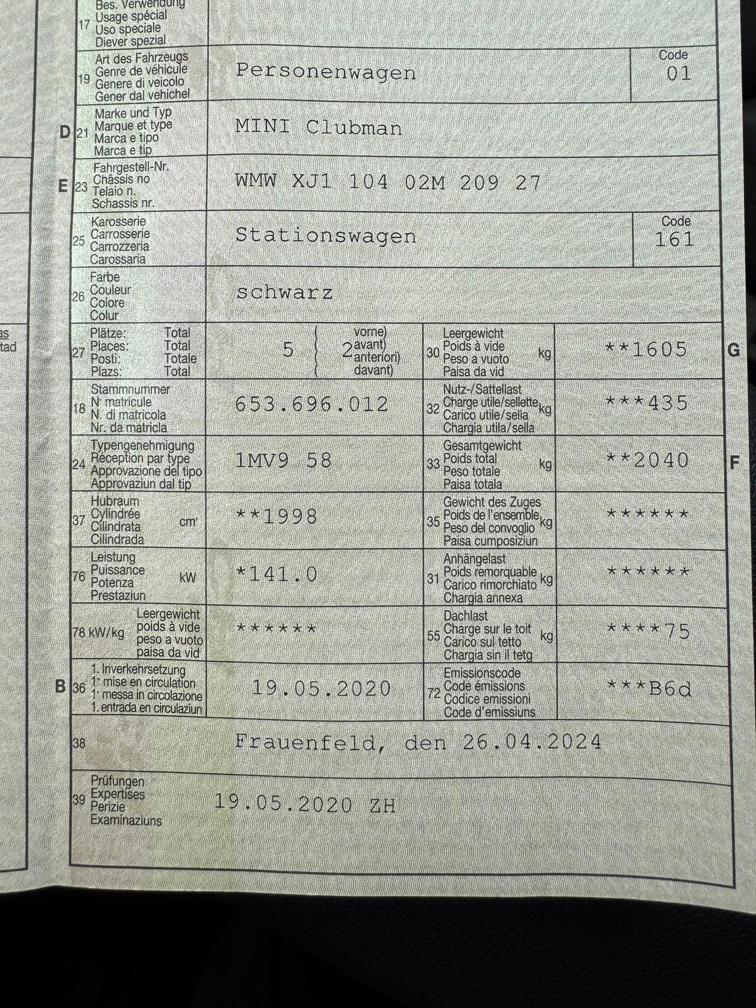 Bes. Verwendung
17 Usage spécial
Uso speciale
Diever spezial
Art des Fahrzeugs
19 Genre de véhicule
Genere di veicolo
Gener dal vehichel
Personenwagen
Code
01
Marke und Typ
D 21 Marque et type
Marca e tipo
Marca e tip
MINI Clubman
Fahrgestell-Nr.
E 23 Châssis no
Telaio n.
Schassis nr.
WMW XJ1 104 02M 209 27
Karosserie
25 Carrosserie
Carrozzeria
Carossaria
Stationswagen
Code
161
Farbe
26 Couleur
Colore
Colur
schwarz
Plätze: Total
27 Places: Total
Posti: Totale
Plazs: Total
5
2
vorne)
avant)
anteriori)
davant)
Leergewicht
30 Poids à vide kg
Peso a vuoto
Paisa da vid
**1605
G
Stammnummer
18 N° matricule
N. di matricola
Nr. da matricla
653.696.012
Nutz-/Sattellast
32 Charge utile/sellette kg
Carico utile/sella
Chargia utila/sella
***435
Typengenehmigung
24 Réception par type
Approvazione del tipo
Approvaziun dal tip
1MV9 58
Gesamtgewicht
33 Poids total kg
Peso totale
Paisa totala
**2040
F
Hubraum
37 Cylindrée cm³
Cilindrata
Cilindrada
**1998
Gewicht des Zuges
35 Poids de l'ensemble kg
Peso del convoglio
Paisa cumposiziun
******
Leistung
76 Puissance kW
Potenza
Prestaziun
*141.0
Anhängelast
31 Poids remorquable kg
Carico rimorchiato
Chargia annexa
******
Leergewicht
78 kW/kg poids à vide
peso a vuoto
paisa da vid
******
Dachlast
55 Charge sur le toit kg
Carico sul tetto
Chargia sin il tetg
****75
1. Inverkehrsetzung
B 36 1re mise en circulation
1a messa in circolazione
1. entrada en circulaziun
19.05.2020
Emissionscode
72 Code émissions
Codice emissioni
Code d'emissiuns
***B6d
38
Frauenfeld, den 26.04.2024
Prüfungen
39 Expertises
Perizie
Examinaziuns
19.05.2020 ZH